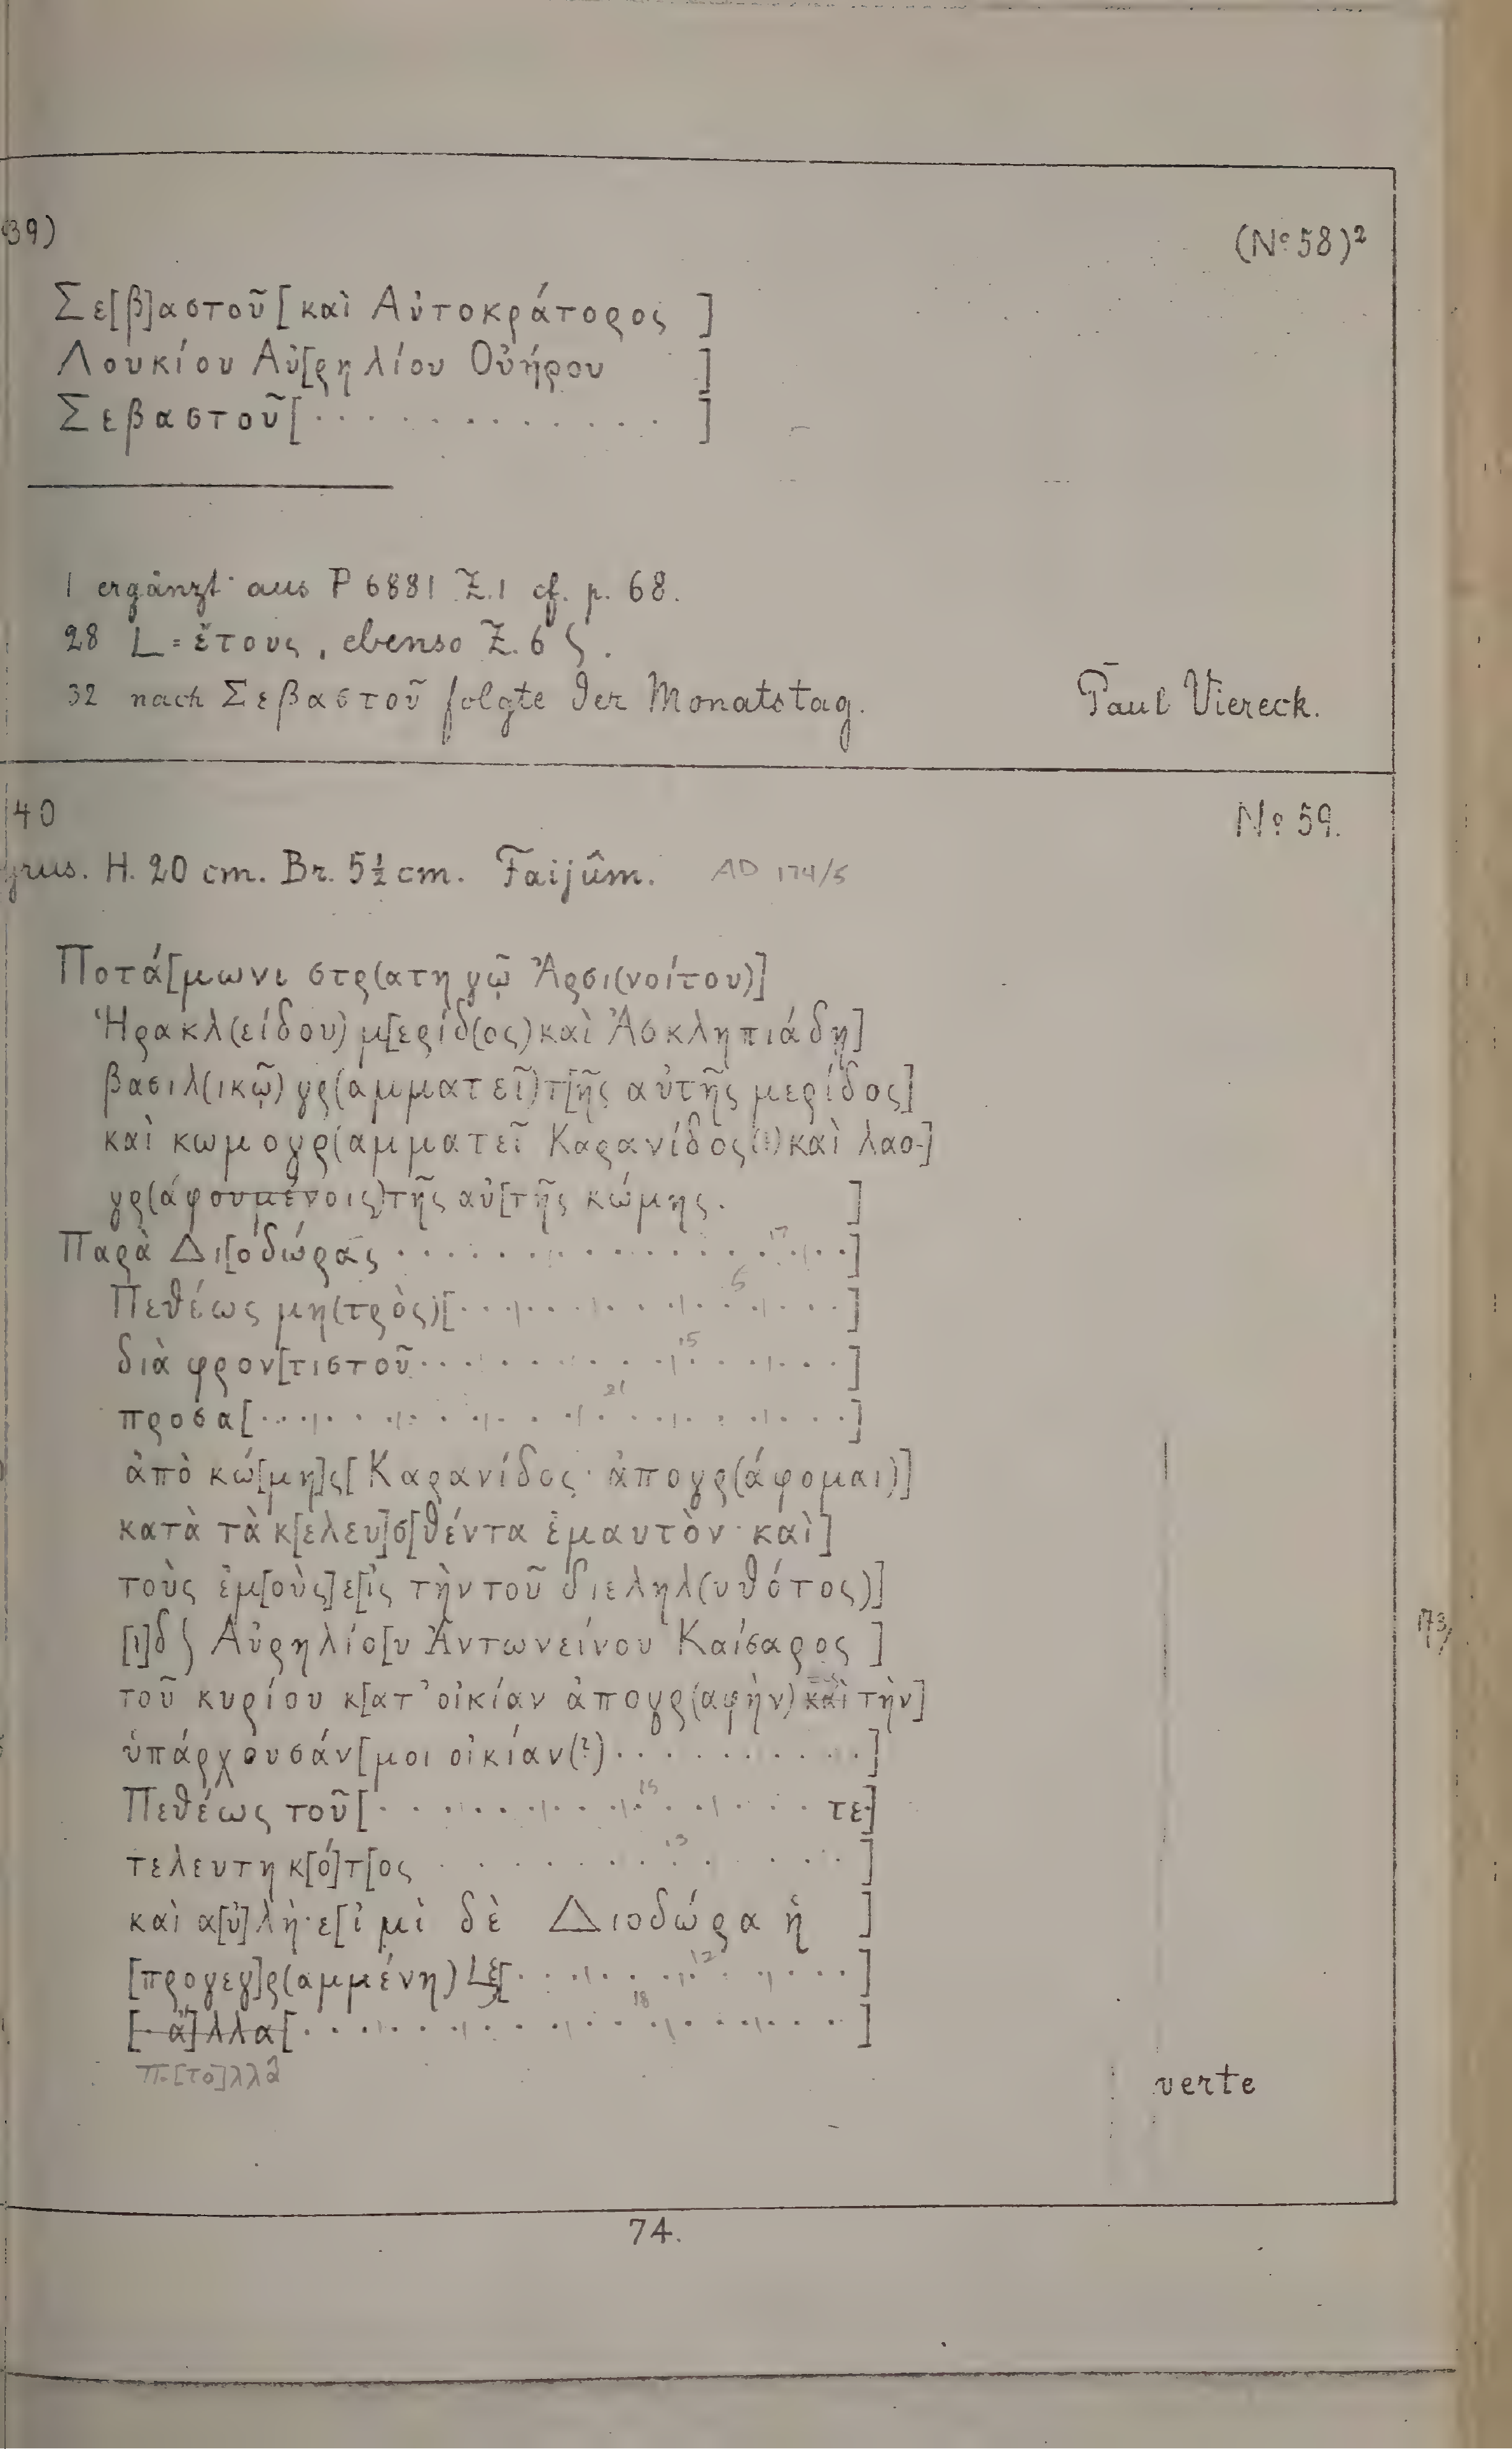 39)
(No 58)²
Σε[β]αστοῦ[καὶ Αὐτοκράτορος ]
Λουκίου Αὐ[ρηλίου Οὐήρου ]
Σεβαστοῦ[· · · · · · · · · · · · ]
1 ergänzt aus P 6881 Z.1 cf. p. 68.
28 L = ἔτους, ebenso Z. 6 ʃ.
32 nach Σεβαστοῦ folgte der Monatstag.
Paul Viereck.
40
No 59.
yrus. H. 20 cm. Br. 5½ cm. Faijûm. AD 174/5
Ποτά[μωνι στρ(ατηγῷ Ἀρσι(νοίτου)]
Ἡρακλ(είδου) μ[ερίδ(ος) καὶ Ἀσκληπιάδῃ]
βασιλ(ικῷ) γρ(αμματεῖ) τ[ῆς αὐτῆς μερίδος]
καὶ κωμογρ(αμματεῖ Καρανίδος(?) καὶ λαο-]
γρ(άφουμένοις) τῆς αὐ[τῆς κώμης. ]
Παρὰ Δι[οδώρας · · · · · · · · · · · · · · · · · ] 17
Πεθέως μη(τρὸς)[· · · · · · · · · · · · · · · ] 5
διὰ φρον[τιστοῦ · · · · · · · · · · · · · · · ] 15
προσα[· · · · · · · · · · · · · · · · · · · · · ] 21
ἀπὸ κώ[μη]ς[ Καρανίδος· ἀπογρ(άφομαι)]
κατὰ τὰ κ[ελευ]σ[θέντα ἐμαυτὸν καὶ]
τοὺς ἐμ[οὺς] ε[ἰς τὴν τοῦ διεληλ(υθότος)]
[ι]δ ʃ Αὐρηλίο[υ Ἀντωνείνου Καίσαρος ]
173/
τοῦ κυρίου κ[ατ' οἰκίαν ἀπογρ(αφὴν) καὶ τὴν]
ὑπάρχουσάν [μοι οἰκίαν(?) · · · · · · · · · · ]
Πεθέως τοῦ [· · · · · · · · · · · · · · · τε-] 15
τελευτηκ[ό]τ[ος · · · · · · · · · · · · · ] 13
καὶ α[ὐ]λὴ· ε[ἰμὶ δὲ Διοδώρα ἡ ]
[προγεγ]ρ(αμμένη) Lξ[· · · · · · · · · · · · ] 12
[· ἀ]λλα[· · · · · · · · · · · · · · · · · · ] 18
Π.[το]λλᾶ
verte
74.